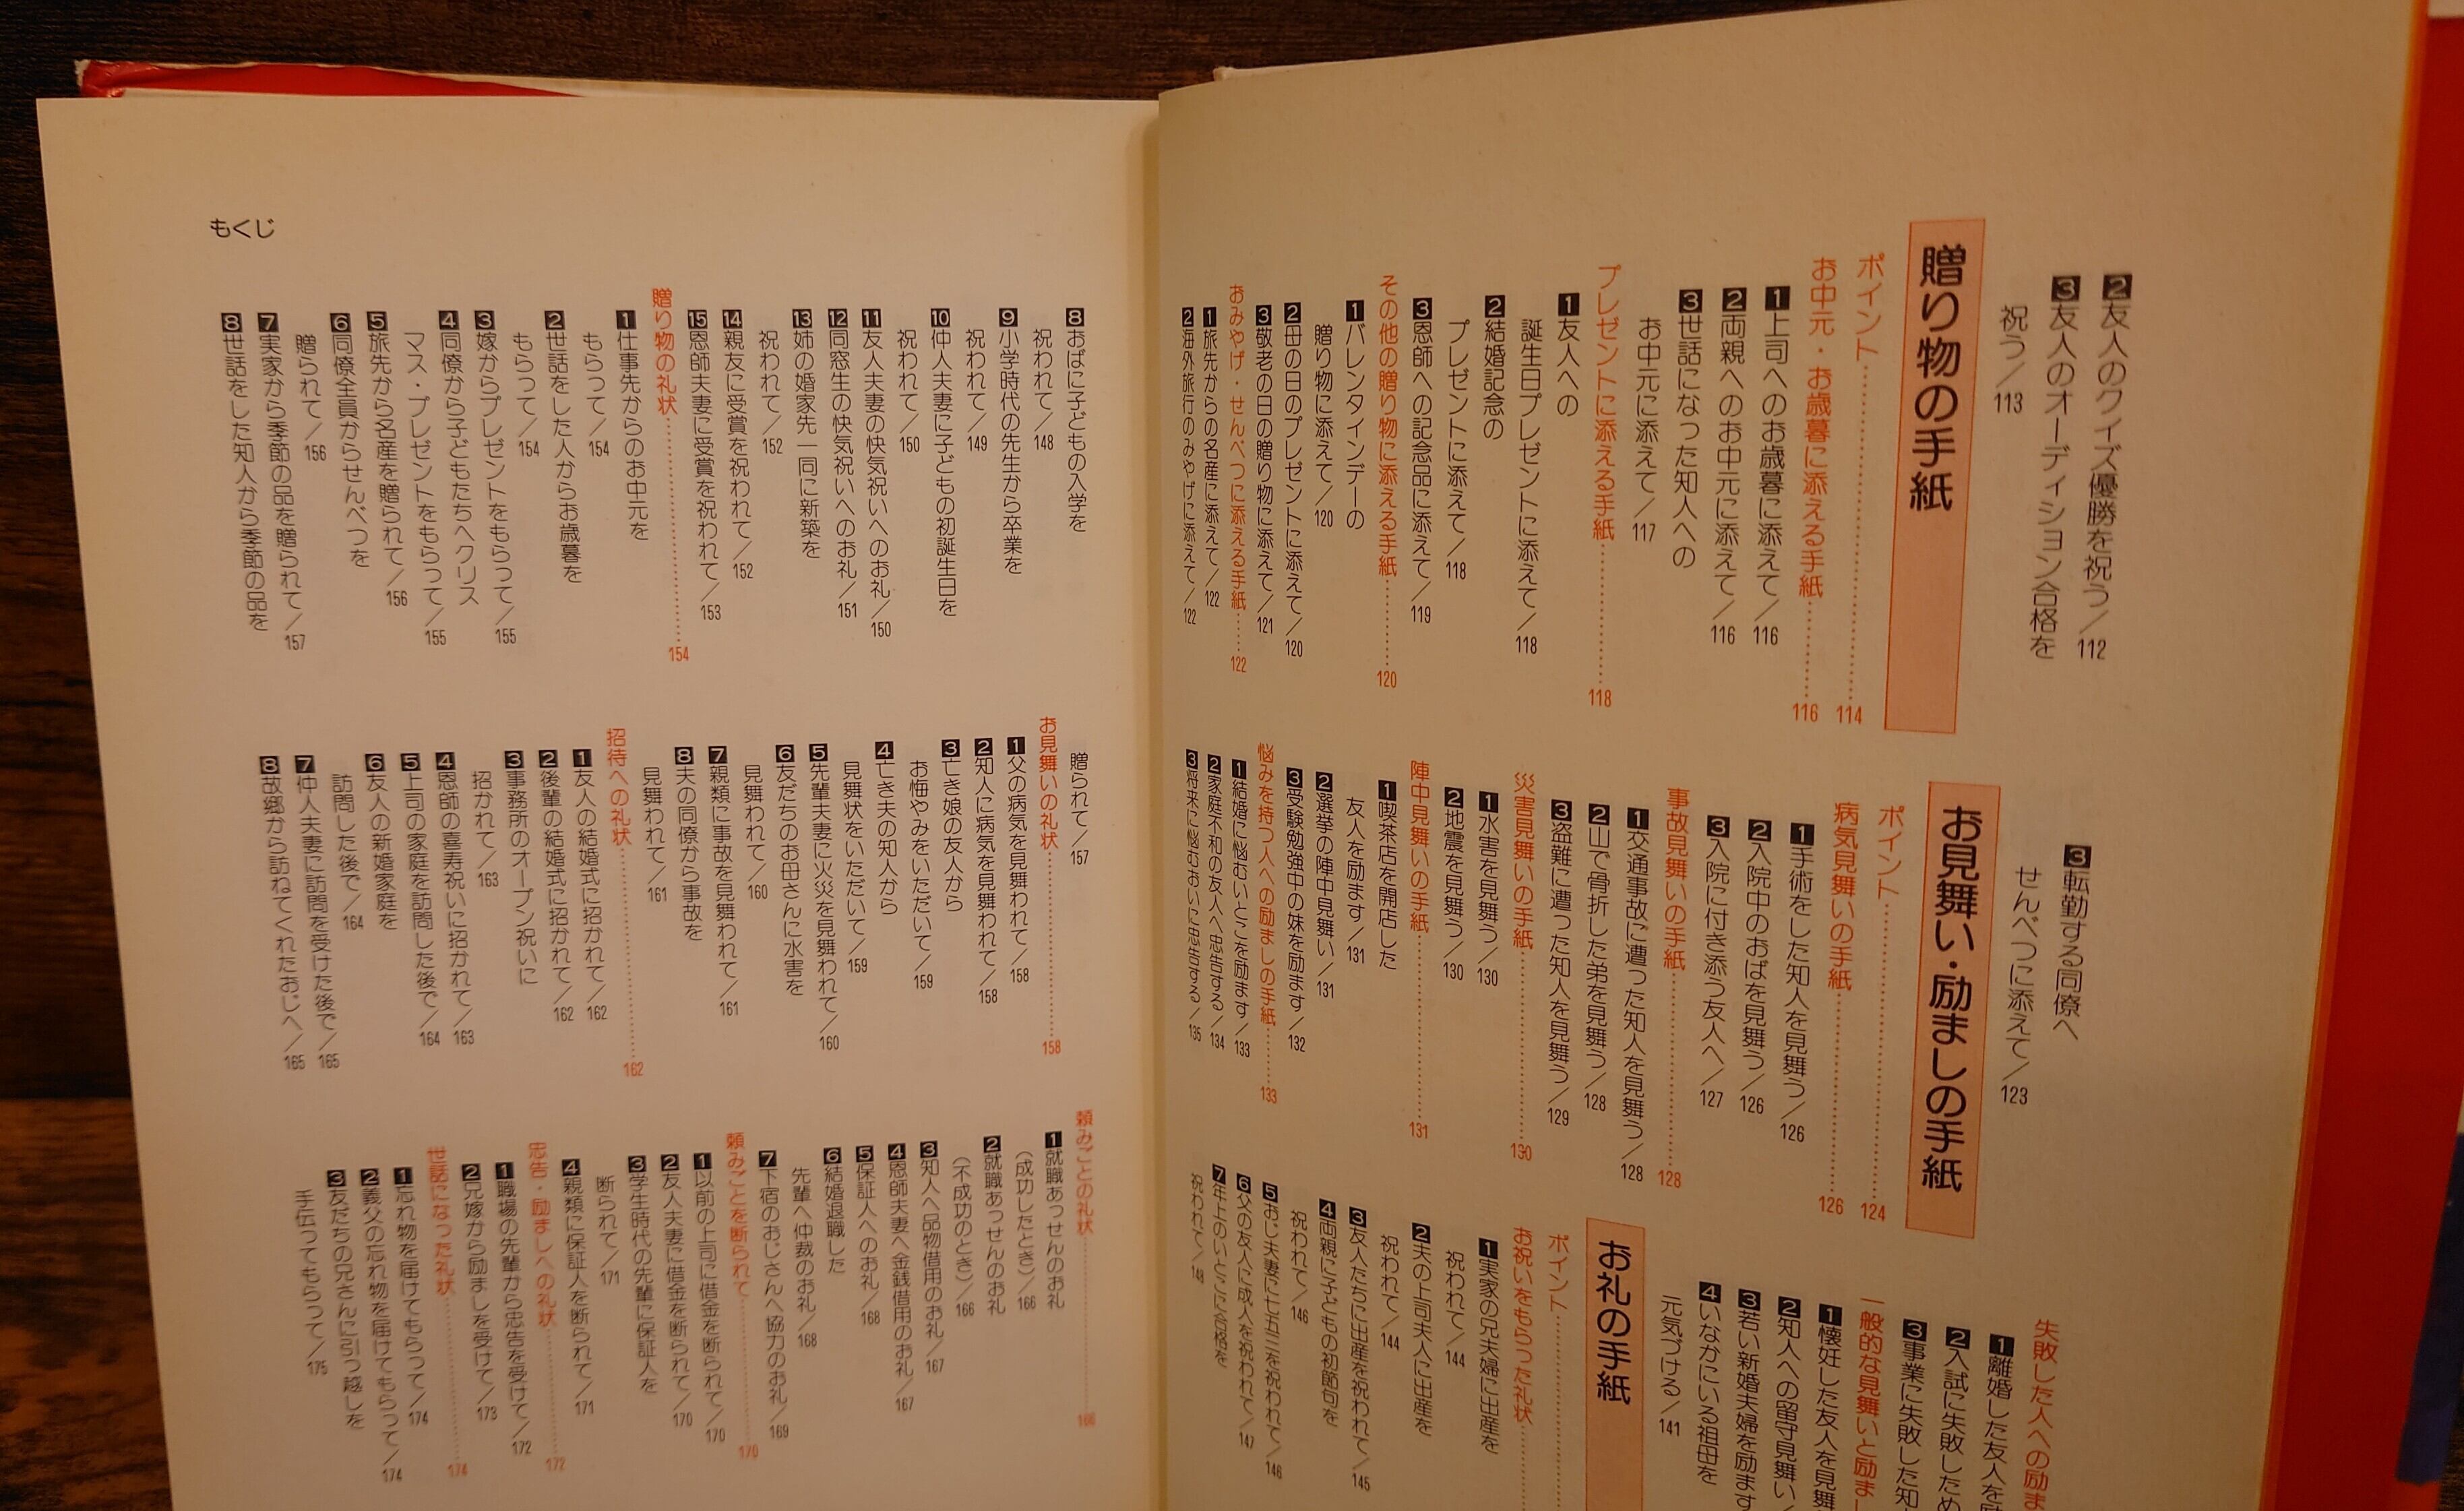 2友人のクイズ優勝を祝う／112
3友人のオーディション合格を
祝う／113
贈り物の手紙
ポイント……114
お中元・お歳暮に添える手紙……116
1上司へのお歳暮に添えて／116
2両親へのお中元に添えて／116
3世話になった知人への
お中元に添えて／117
プレゼントに添える手紙……118
1友人への
誕生日プレゼントに添えて／118
2結婚記念の
プレゼントに添えて／118
3恩師への記念品に添えて／119
その他の贈り物に添える手紙……120
1バレンタインデーの
贈り物に添えて／120
2母の日のプレゼントに添えて／120
3敬老の日の贈り物に添えて／121
おみやげ・せんべつに添える手紙……122
1旅先からの名産に添えて／122
2海外旅行のみやげに添えて／122
3転勤する同僚へ
せんべつに添えて／123
お見舞い・励ましの手紙
ポイント……124
病気見舞いの手紙……126
1手術をした知人を見舞う／126
2入院中のおばを見舞う／126
3入院に付き添う友人へ／127
事故見舞いの手紙……128
1交通事故に遭った知人を見舞う／128
2山で骨折した弟を見舞う／128
3盗難に遭った知人を見舞う／129
災害見舞いの手紙……130
1水害を見舞う／130
2地震を見舞う／130
陣中見舞いの手紙……131
1喫茶店を開店した
友人を励ます／131
2選挙の陣中見舞い／131
3受験勉強中の妹を励ます／132
悩みを持つ人への励ましの手紙……133
1結婚に悩むいとこを励ます／133
2家庭不和の友人へ忠告する／134
3将来に悩むおいに忠告する／135
失敗した人への励ま
1離婚した友人を
2入試に失敗したため
3事業に失敗した知
一般的な見舞いと励まし
1懐妊した友人を見舞
2知人への留守見舞い／
3若い新婚夫婦を励ます
4いなかにいる祖母を
元気づける／141
お礼の手紙
ポイント……
お祝いをもらった礼状……
1実家の兄夫婦に出産を
祝われて／144
2夫の上司夫人に出産を
祝われて／144
3友人たちに出産を祝われて／145
4両親に子どもの初節句を
祝われて／146
5おじ夫妻に七五三を祝われて／146
6父の友人に成人を祝われて／147
7年上のいとこに合格を
祝われて／148
8おばに子どもの入学を
祝われて／148
9小学時代の先生から卒業を
祝われて／149
10仲人夫妻に子どもの初誕生日を
祝われて／150
11友人夫妻の快気祝いへのお礼／150
12同窓生の快気祝いへのお礼／151
13姉の婚家先一同に新築を
祝われて／152
14親友に受賞を祝われて／152
15恩師夫妻に受賞を祝われて／153
贈り物の礼状……154
1仕事先からのお中元を
もらって／154
2世話をした人からお歳暮を
もらって／154
3嫁からプレゼントをもらって／155
4同僚から子どもたちへクリス
マス・プレゼントをもらって／155
5旅先から名産を贈られて／156
6同僚全員からせんべつを
贈られて／156
7実家から季節の品を贈られて／157
8世話をした知人から季節の品を
もくじ
贈られて／157
お見舞いの礼状……158
1父の病気を見舞われて／158
2知人に病気を見舞われて／158
3亡き娘の友人から
お悔やみをいただいて／159
4亡き夫の知人から
見舞状をいただいて／159
5先輩夫妻に火災を見舞われて／160
6友だちのお母さんに水害を
見舞われて／160
7親類に事故を見舞われて／161
8夫の同僚から事故を
見舞われて／161
招待への礼状……162
1友人の結婚式に招かれて／162
2後輩の結婚式に招かれて／162
3事務所のオープン祝いに
招かれて／163
4恩師の喜寿祝いに招かれて／163
5上司の家庭を訪問した後で／164
6友人の新婚家庭を
訪問した後で／164
7仲人夫妻に訪問を受けた後で／165
8故郷から訪ねてくれたおじへ／165
頼みごとの礼状……166
1就職あっせんのお礼
（成功したとき）／166
2就職あっせんのお礼
（不成功のとき）／166
3知人へ品物借用のお礼／167
4恩師夫妻へ金銭借用のお礼／167
5保証人へのお礼／168
6結婚退職した
先輩へ仲裁のお礼／168
7下宿のおじさんへ協力のお礼／169
頼みごとを断られて……170
1以前の上司に借金を断られて／170
2友人夫妻に借金を断られて／170
3学生時代の先輩に保証人を
断られて／171
4親類に保証人を断られて／171
忠告・励ましへの礼状……172
1職場の先輩から忠告を受けて／172
2兄嫁から励ましを受けて／173
世話になった礼状……174
1忘れ物を届けてもらって／174
2義父の忘れ物を届けてもらって／174
3友だちの兄さんに引っ越しを
手伝ってもらって／175